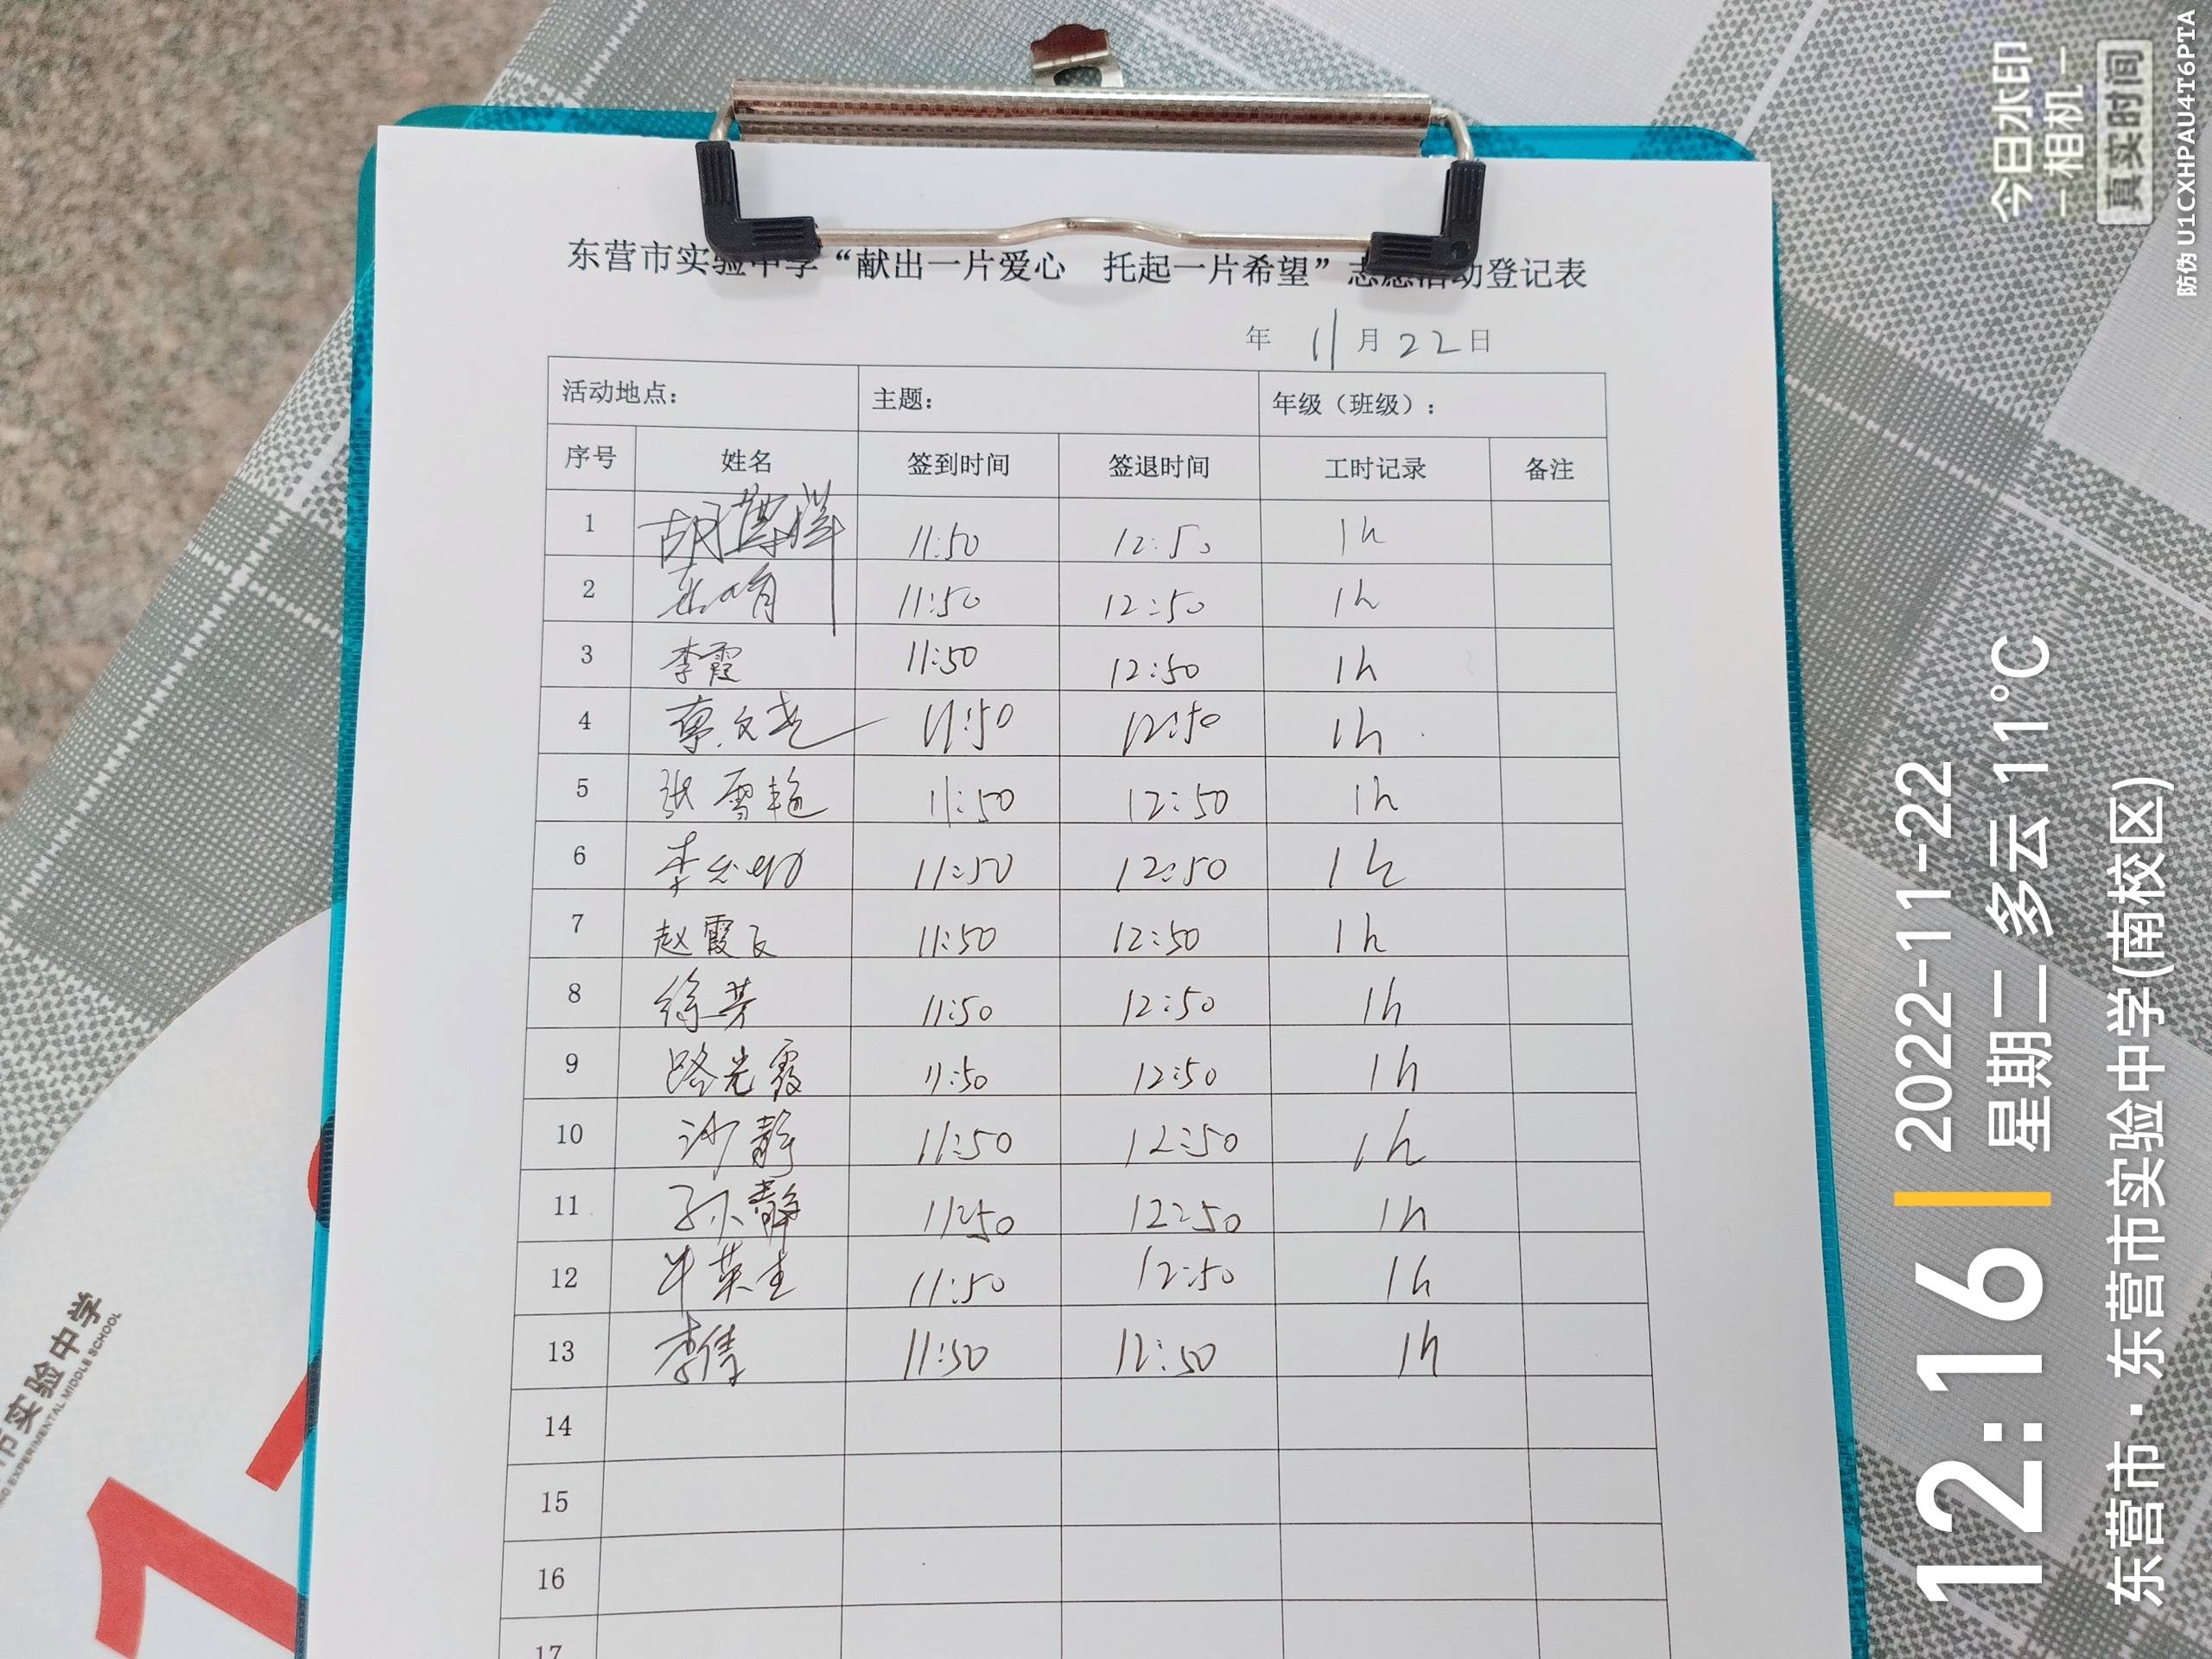 东营市实验中学“献出一片爱心 托起一片希望”志愿活动登记表
年 11月22日
活动地点： 主题： 年级（班级）：
序号 姓名 签到时间 签退时间 工时记录 备注
1 11:50 12:50 1h
2 11:50 12:50 1h
3 李霞 11:50 12:50 1h
4 11:50 12:50 1h
5 张雪艳 11:50 12:50 1h
6 李 11:50 12:50 1h
7 赵霞飞 11:50 12:50 1h
8 徐芳 11:50 12:50 1h
9 路光霞 11:50 12:50 1h
10 沙静 11:50 12:50 1h
11 孙静 11:50 12:50 1h
12 牛英 11:50 12:50 1h
13 李倩 11:50 12:50 1h
14
15
16
17
今日水印
相机
真实时间
防伪 U1CXHPAU4T6PTA
12:16
2022-11-22
星期二 多云 11°C
东营市·东营市实验中学(南校区)
市实验中学
EXPERIMENTAL MIDDLE SCHOOL